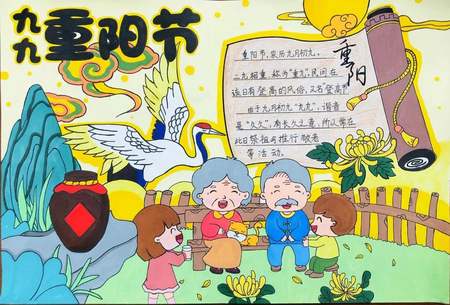 九九重阳节
重阳
重阳节,农历九月初九,
二九相重,称为"重九",民间在
该日有登高的风俗,又名登高节
由于九月初九"九九",谐音
是"久久",有长久之意,所以常在
此日祭祖与推行敬老
等活动。